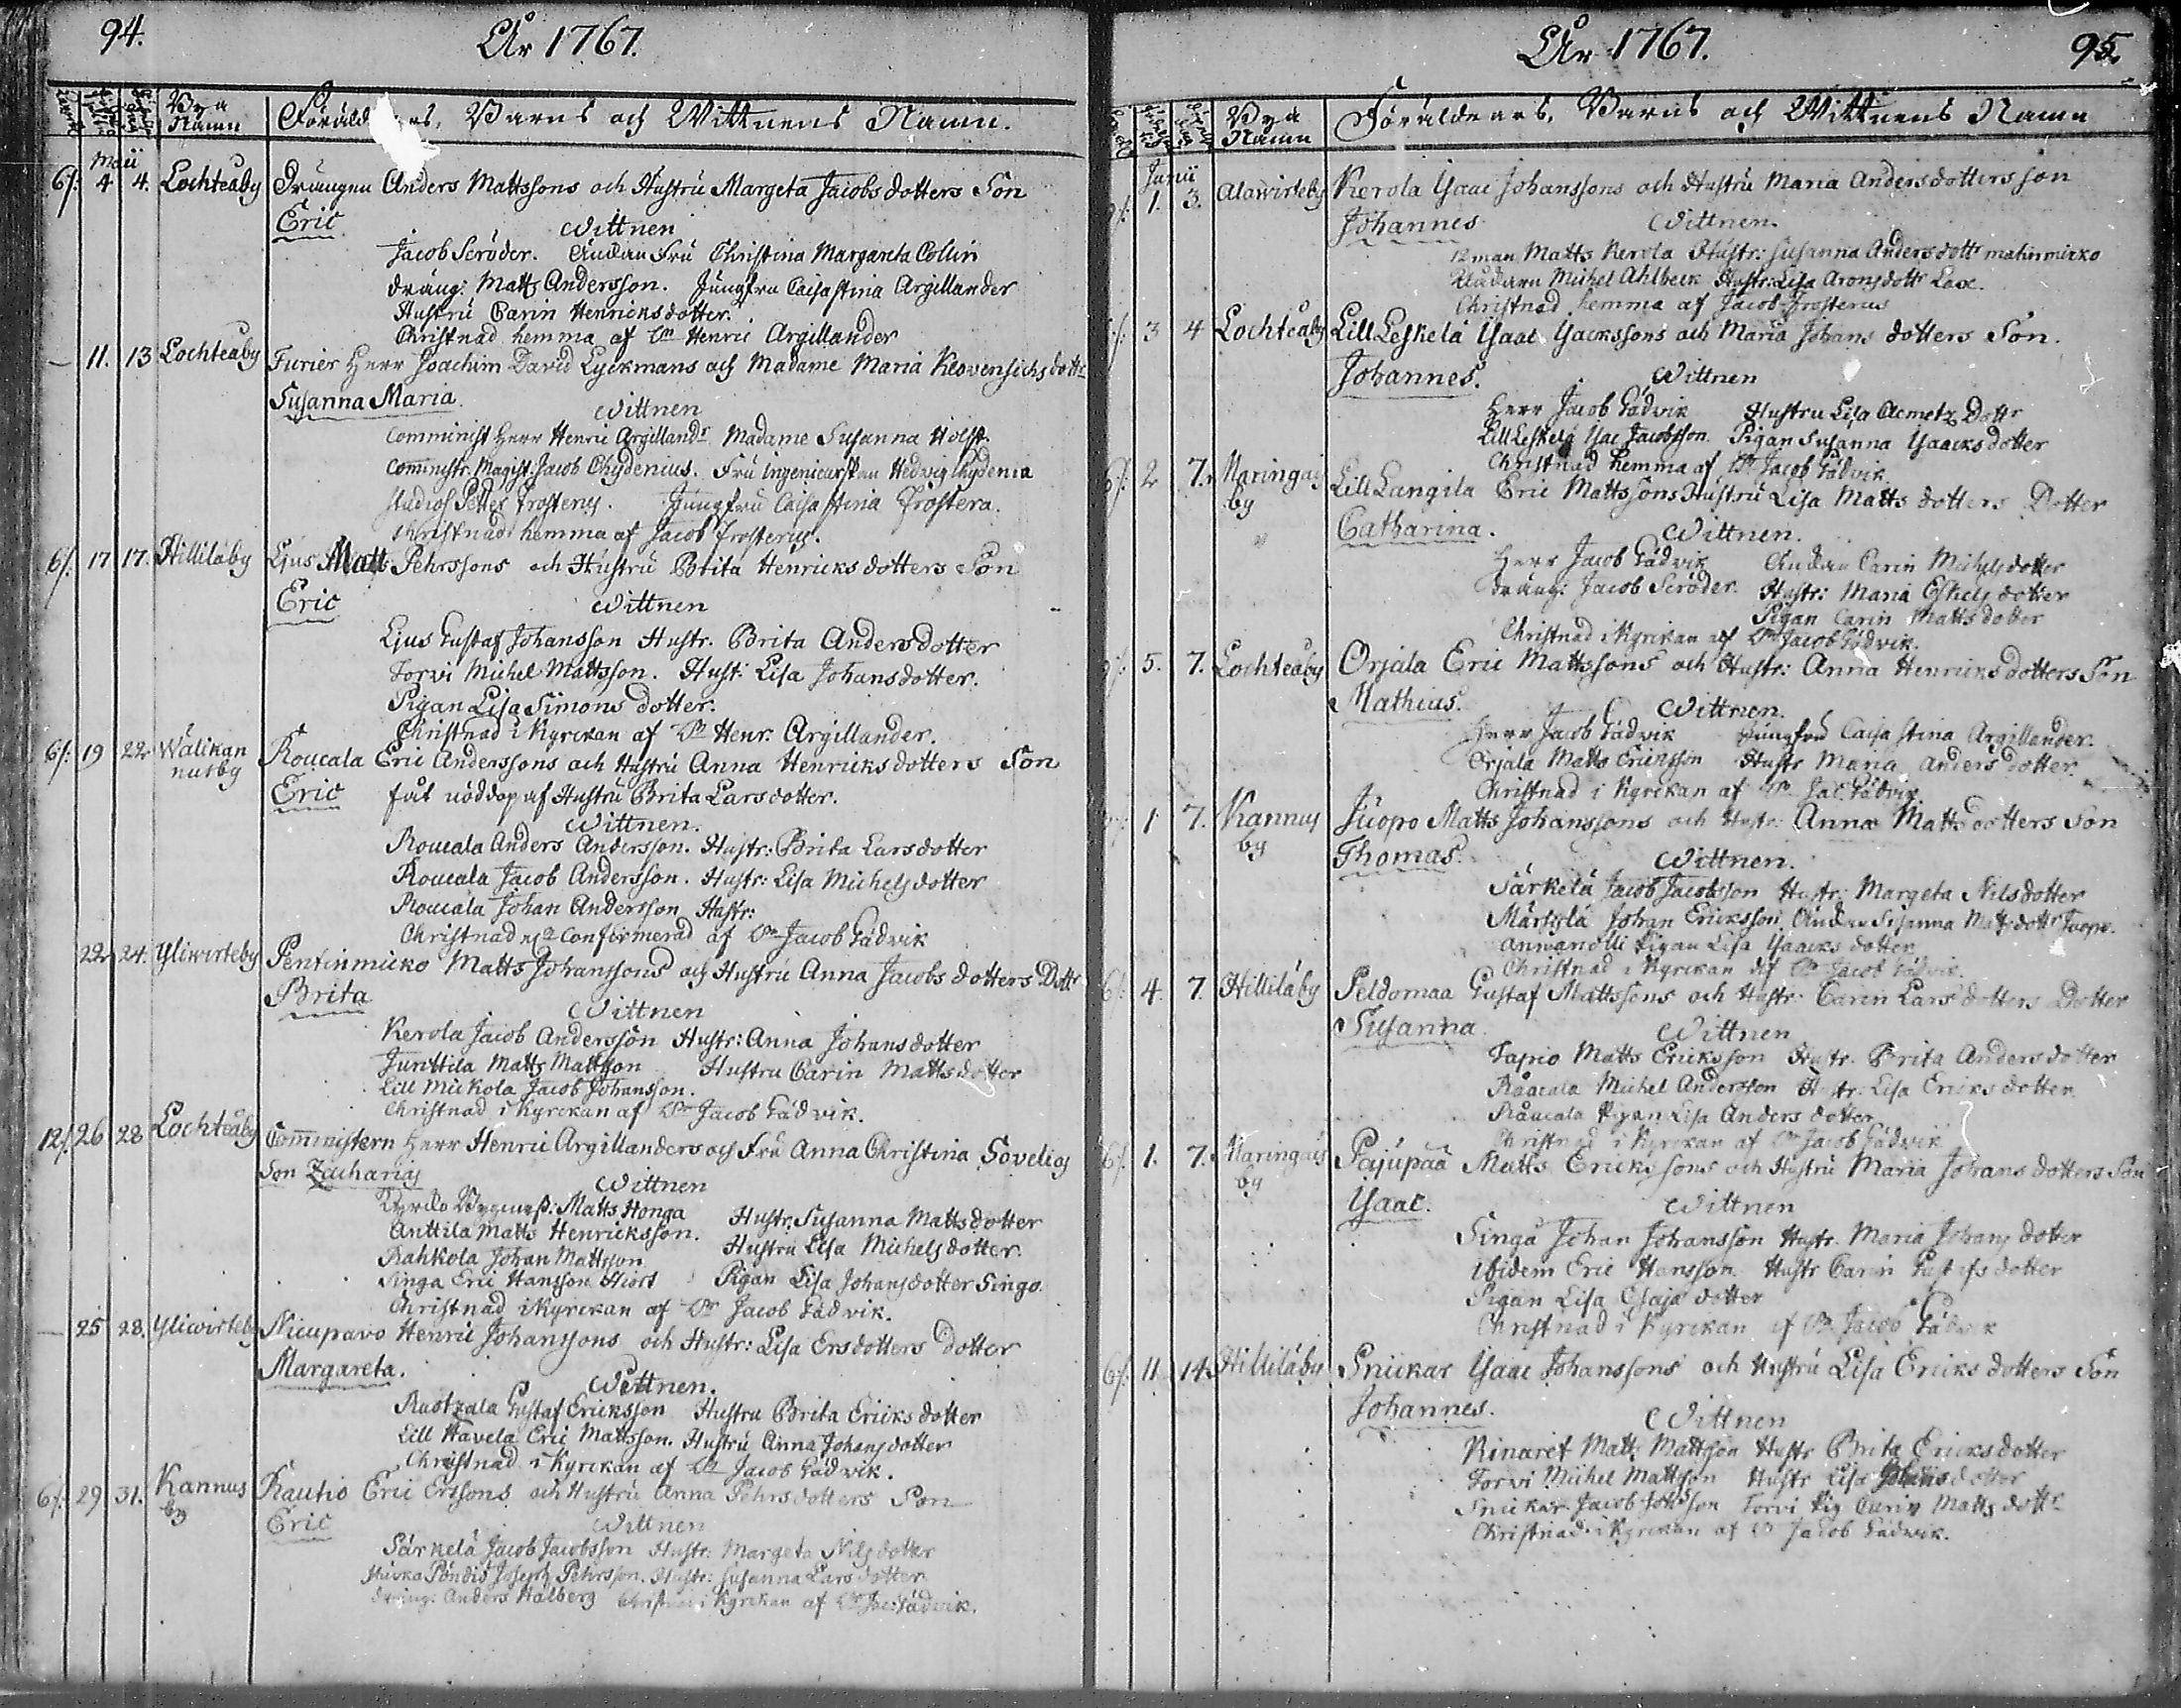 94.
År 1767.
Bya Namn
Föräldrars, Barns och Wittnens Namn.
Maii
6/: 4 4. Lochteåby Drängen Anders Mattssons och Hustrù Margeta Jacobs dotters Son
Eric
Wittnen
Jacob Scröder. Änckan Fru Christina Margareta Collin
dräng: Matts Andersson. Jungfru Caisastina Argillander
Hustrù Carin Henricksdotter.
Christnad hemma af Hr Henric Argillander
— 11. 13 Lochteåby Furier Herr Joachim David Lyckmans och Madame Maria Klövensichs dottr
Susanna Maria
Wittnen
Comminist Herr Henric Argillandr Madame Susanna Holst.
Comministr. Magist: Jacob Chydenius. Fru Ingenieurskan Hedvig Chydenia
studios Petter Frosterus. Jungfru Caisa stina Frostera.
Christnad hemma af Jacob Frosterus.
6/. 17 17. Hilliläby Ljus Matts Pehrssons och Hustrù Brita Henricks dotters Son
Eric
Wittnen
Ljus Gustaf Johansson Hustr. Brita Andersdotter
Torvi Michel Mattsson. Hust: Lisa Johansdotter.
Pigan Lisa Simons dotter.
Christnad i Kyrckan af Hr Henr. Argillander.
6/: 19 22 Wälikan
nusby
Roucala Eric Anderssons och Hustrù Anna Henricks dotters Son
Eric fåt nöddop af Hustrù Brita Larsdotter.
Wittnen.
Roucala Anders Andersson. Hustr: Brita Larsdotter
Roucala Jacob Andersson. Hustr: Lisa Michelsdotter
Roucala Johan Andersson Hustr:
Christnad och Confirmerad af Hr Jacob Gådvik
22 24. Yliwirteby Pentinmicko Matts Johanssons och Hustrù Anna Jacobs dotters Dottr
Brita
Wittnen
Kerola Jacob Andersson Hustr: Anna Johansdotter
Junttila Matts Mattsson Hustru Carin Mattsdotter
Lill Mickola Jacob Johansson.
Christnad i Kyrckan af Hr Jacob Gådvik.
12/. 26 28 Lochteåby Comministern Herr Henric Argillanders och Fru Anna Christina Sovelios
Son Zacharias
Wittnen
Matts Honga Hustr. Susanna Mattsdotter
Anttila Matts Henricksson. Hustru Lisa Michelsdotter.
Rahkola Johan Mattsson
Singa Eric Hansson Hiort Pigan Lisa Johansdotter Singo.
Christnad i Kyrckan af Hr Jacob Gådvik.
— 25 28. Yliwirteby Nicupavo Henric Johanssons och Hustr: Lisa Ersdotters dotter
Margareta.
Wittnen.
Ruotzala Gustaf Ericksson Hustru Brita Ericks dotter
Lill Havela Eric Mattsson. Hustrù Anna Johansdotter
Christnad i Kyrckan af Hr Jacob Gådvik.
6/. 29 31. Kannus
by
Rautio Eric Erssons och Hustrù Anna Pehrsdotters Son
Eric
Wittnen
Särkelä Jacob Jacobsson Hustr: Margeta Nilsdotter
Pöndiö Joseph Pehrsson. Hustr: Susanna Larsdotter
dräng: Anders Halberg Christnad i Kyrckan af Hr Jac: Gådvik.
År 1767.
95.
Bya Namn
Föräldrars, Barns och Wittnens Namn
Junii
1. 3. Alawirteby Kerola Ysaac Johanssons och Hustrù Maria Andersdotters son
Johannes
Wittnen.
12man Matts Kerola Hustr: Susanna Andersdottr matinmicko
Michel Ahlbeck Hustr: Lisa Aronsdottr Lax.
Christnad hemma af Jacob Frosterus
3 4 Lochteåby Lill Leskelä Ysaac Ysackssons och Maria Johans dotters Son.
Johannes.
Wittnen
Herr Jacob Gådvik Hustru Lisa Acmetz Dottr
Lill Leskelä Ysac Jacobsson. Pigan Susanna Ysaacksdotter
Christnad hemma af Hr Jacob Gådvik.
6/. 2 7. Maringais
by
Lill Langila Eric Mattssons Hustrù Lisa Matts dotters Dotter
Catharina.
Wittnen.
Herr Jacob Gådvik Änckan Carin Michelsdotter
dräng: Jacob Scröder. Hustr: Maria Eskelsdotter
Pigan Carin Mattsdotter
Christnad i Kyrckan af Hr Jacob Gådvik.
5. 7. Lochteåby Orjala Eric Mattssons och Hustr: Anna Henricksdotters Son
Mathias.
Wittnen.
Herr Jacob Gådvik Jungfru Caisa stina Argillander.
Orjala Matts Ericksson Hustr Maria Anders dotter.
Christnad i Kyrckan af Hr Jac. Gådvik
1 7. Kannus
by
Juopo Matts Johanssons och Hustr: Anna Matts dotters Son
Thomas.
Wittnen.
Särkelä Jacob Jacobsson Hustr: Margeta Nilsdotter
Märsylä Johan Ericksson Änckan Susanna Mattsdottr Juopo.
Pigan Lisa Ysaacks dotter
Christnad i Kyrckan af Hr Jacob Gådvik.
6/: 4. 7. Hilliläby Peldomaa Gustaf Mattssons och Hustr: Carin Lars dotters Dotter
Susanna.
Wittnen
Tapio Matts Ericksson Hustr. Brita Andersdotter
Michel Andersson Hustr: Lisa Ericks dotter
Pigan Lisa Anders dotter
Christnad i Kyrckan af Hr Jacob Gådvik
6/. 1. 7. Maringais
by
Pajupää Matts Erickssons och Hustrù Maria Johans dotters Son
Ysaac.
Wittnen
Singa Johan Johansson Hustr. Maria Johans dotter
Ibidem Eric Hansson Hustr Carin Gustafsdotter
Pigan Lisa Esaja dotter
Christnad i Kyrckan af Hr Jacob Gådvik
6/: 11 14. Hilliläby Snickar Ysaac Johanssons och Hustrù Lisa Ericks dotters Son
Johannes.
Wittnen
Rinaret Matts Mattsson Hustr Brita Ericksdotter
Torvi Michel Mattsson Hustr Lisa Johansdotter
Snickar Jacob Johsson Torvi Pig Carin Matts dottr
Christnad i Kyrckan af Hr Jacob Gådvik.